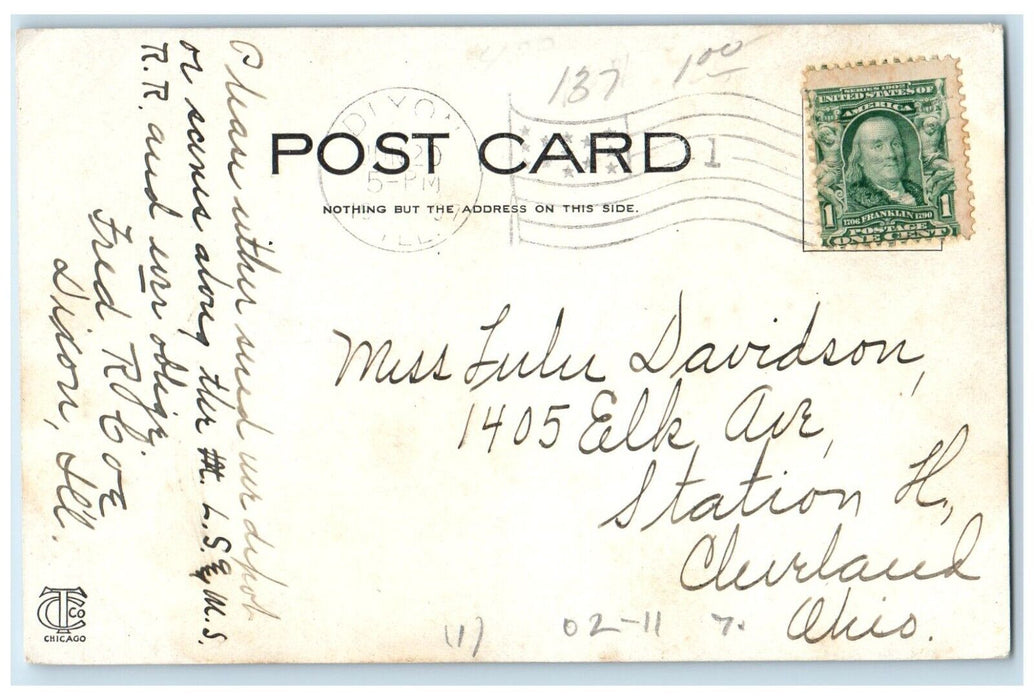 137 1.00
DIXON
20
5-PM
ILL.
1
POST CARD
NOTHING BUT THE ADDRESS ON THIS SIDE.
SERIES 1902
UNITED STATES OF
AMERICA
1 1706 FRANKLIN 1790 1
POSTAGE
ONE CENT
Please either send our depot
or scenes along the L.S.& M.S.
R.R. and obligr.
Fred R Coe
Dixon, Ill.
Miss Lulu Davidson,
1405 Elk Ave,
Station H,
Cleveland
Ohio.
(1) 02-11 7.
TC CO
CHICAGO